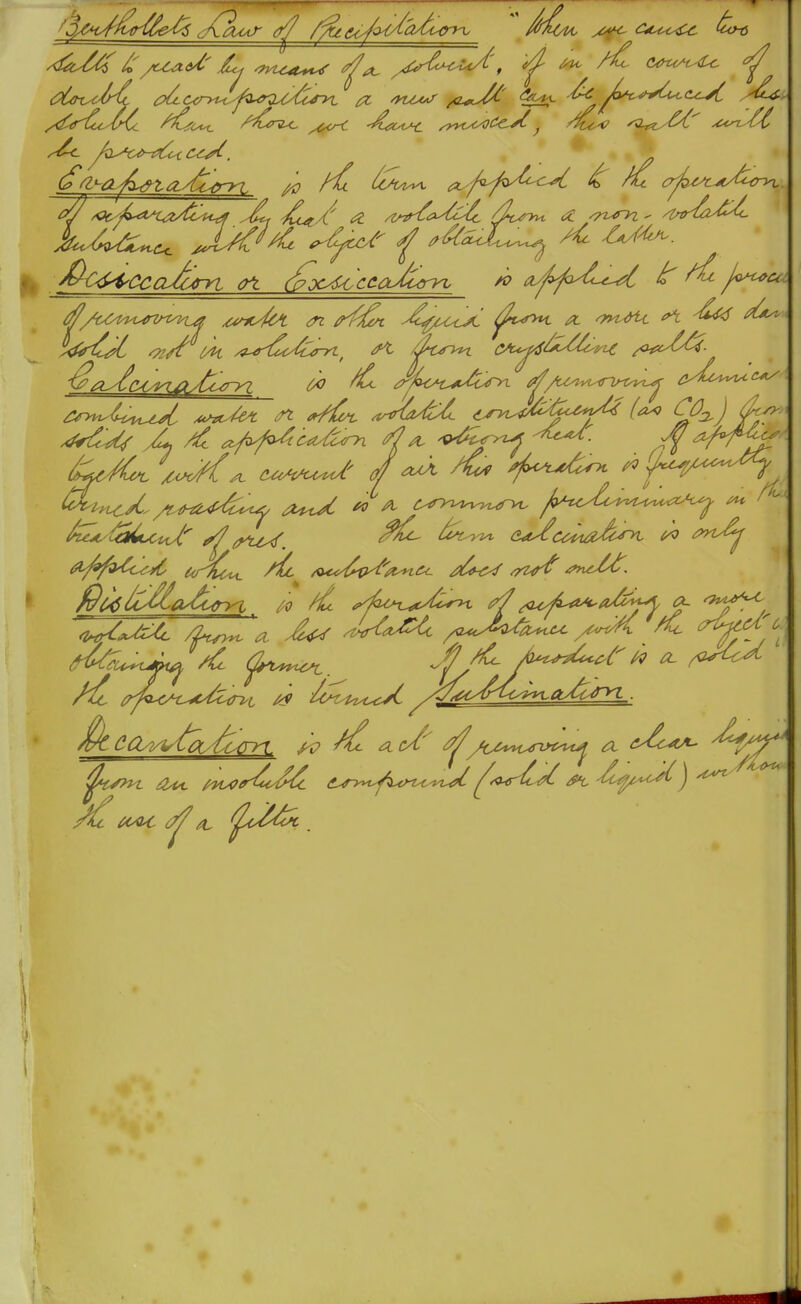 Berthollet's Law of Precipitation "When we cause two
salts to react by means of a solvent, if in the course of
double decomposition a new salt can be produced less
soluble than those we have mixed, this salt will
be produced.
Evaporation is the term applied to the operation
of separating by heat a volatile from a non-volatile
substance with the object of obtaining the latter.
Desiccation or Exsiccation is applied to the process
of removing water or other liquid from a more or less
solid not in solution, or from crystalline salts.
Calcination is the operation of removing chemically
combined water or other volatile constituents (as CO2) from
solids by the application of a strong heat. If applied
together with a current of air this operation is frequently
termed roasting and is a common preliminary in the
treatment of ores. The term calcination is only
applied when the substance does not melt.
Distillation is the operation of separating a more
volatile from a less volatile substance with the object of
obtaining the former. If the product is a solid
the operation is termed sublimation.
Decantation is the act of removing a clear liquid
from an insoluble compound (solid or liquid) without
the use of a filter.